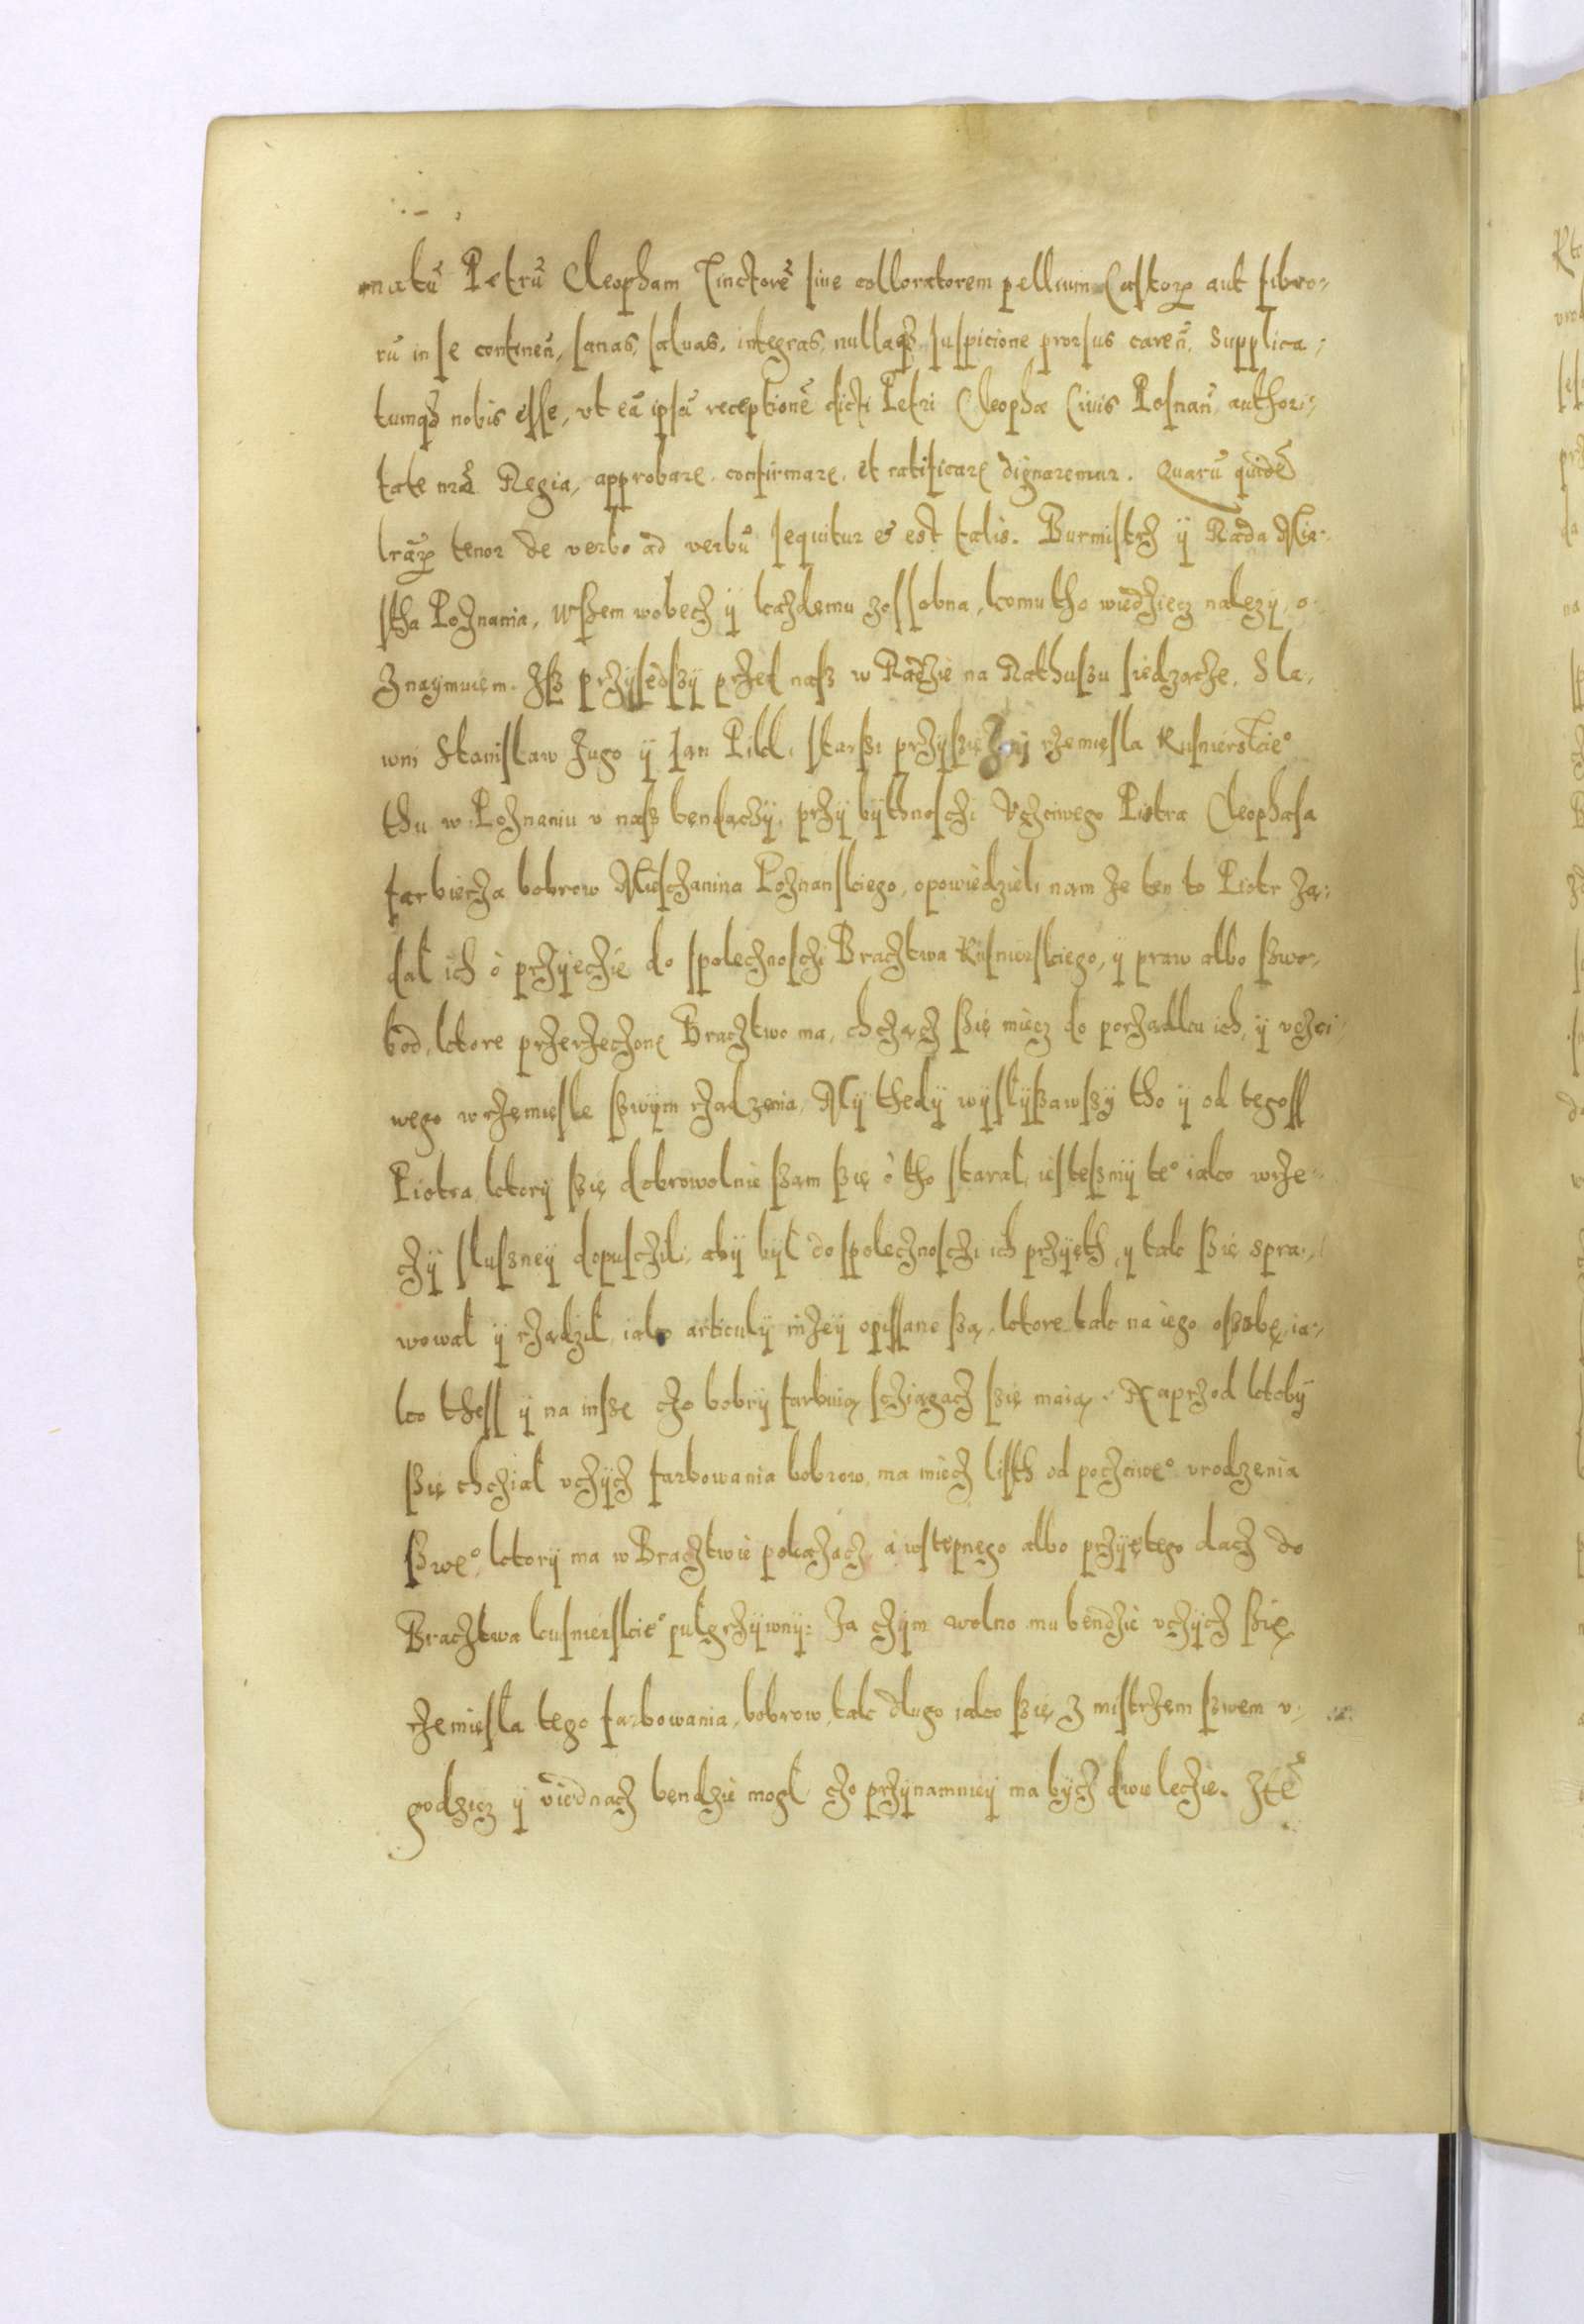 natū Petrū Cleopham Tinctorē siue colloratorem pellium Castorꝝ aut fibro-
rū in se continen̄, sanas, saluas, integras, nullaqꝫ suspicione prorsus caren̄. Supplica-
tumqꝫ nobis esse, vt eā ipsā receptionē dicti Petri Cleophæ Ciuis Posnan̄ authori-
tate nr̄a Regia, approbare, confirmare, et ratificare dignaremur. Quarū quidē
lr̄aꝝ tenor de verbo ad verbū sequitur & est talis. Burmistrz ÿ Rada Mia-
stha Poznania, wszem wobecz ÿ kazdemu zossobna, komu tho wiedziecz nalezÿ, o-
znaÿmuiem. Isz przÿsedszÿ przed nasz w Radzie na Rathuszu siedzacze. Sla-
wni Stanislaw Zugo ÿ Jan Pikl, starszi przÿsięznÿ rzemięsla Kusnierskieº
thu w Poznaniu v nasz bendączÿ, przÿ bÿthnosczi Vczciwego Piotra Cleophasa
farbierza bobrow Miesczanina Poznanskiego, opowiedzieli nam ze ten to Piotr ża-
dał ich ò przÿięczie do spolecznosczi Bracztwa Kusnierskiego, ÿ praw albo szwo-
bod, ktore przerzeczone Bracztwo ma, chcząc szię miecz do porzadku ich, ÿ vczci-
wego w rzemięsle szwÿm rządzenia, Mÿ thedÿ wÿslÿszawszÿ tho ÿ od tegoss
Piotra, ktorÿ szię dobrowolnie szam szię ò tho starał, iestesmÿ teº iako w rze-
czÿ slusneÿ dopusczili, abÿ bÿł do spolecznosczi ich przÿięth, ÿ tak szię spra-
wował ÿ rządził, iako articulÿ nizeÿ opissane szą, ktore tak na iego ossobę, ia-
ko thess ÿ na insze czo bobrÿ farbuią, sciągacz szię maią. Naprzod ktobÿ
szię chcział vczÿcz farbowania bobrow, ma miecz listh od pocztiweº vrodzenia
szweº, ktorÿ ma w Bracztwie pokazacz, á wstępnego albo przÿiętego dacz do
Bracztwa kusnierskieº pułgrzÿwnÿ: Za czÿm wolno mu bendzie vczÿcz szię
rzemięsla tego farbowania, bobrow, tak dlugo iako szię z mistrzem szwem v-
godzicz ÿ viednacz bendzie mogł czo przÿnamnieÿ ma bÿcz dwie leczie. Itē